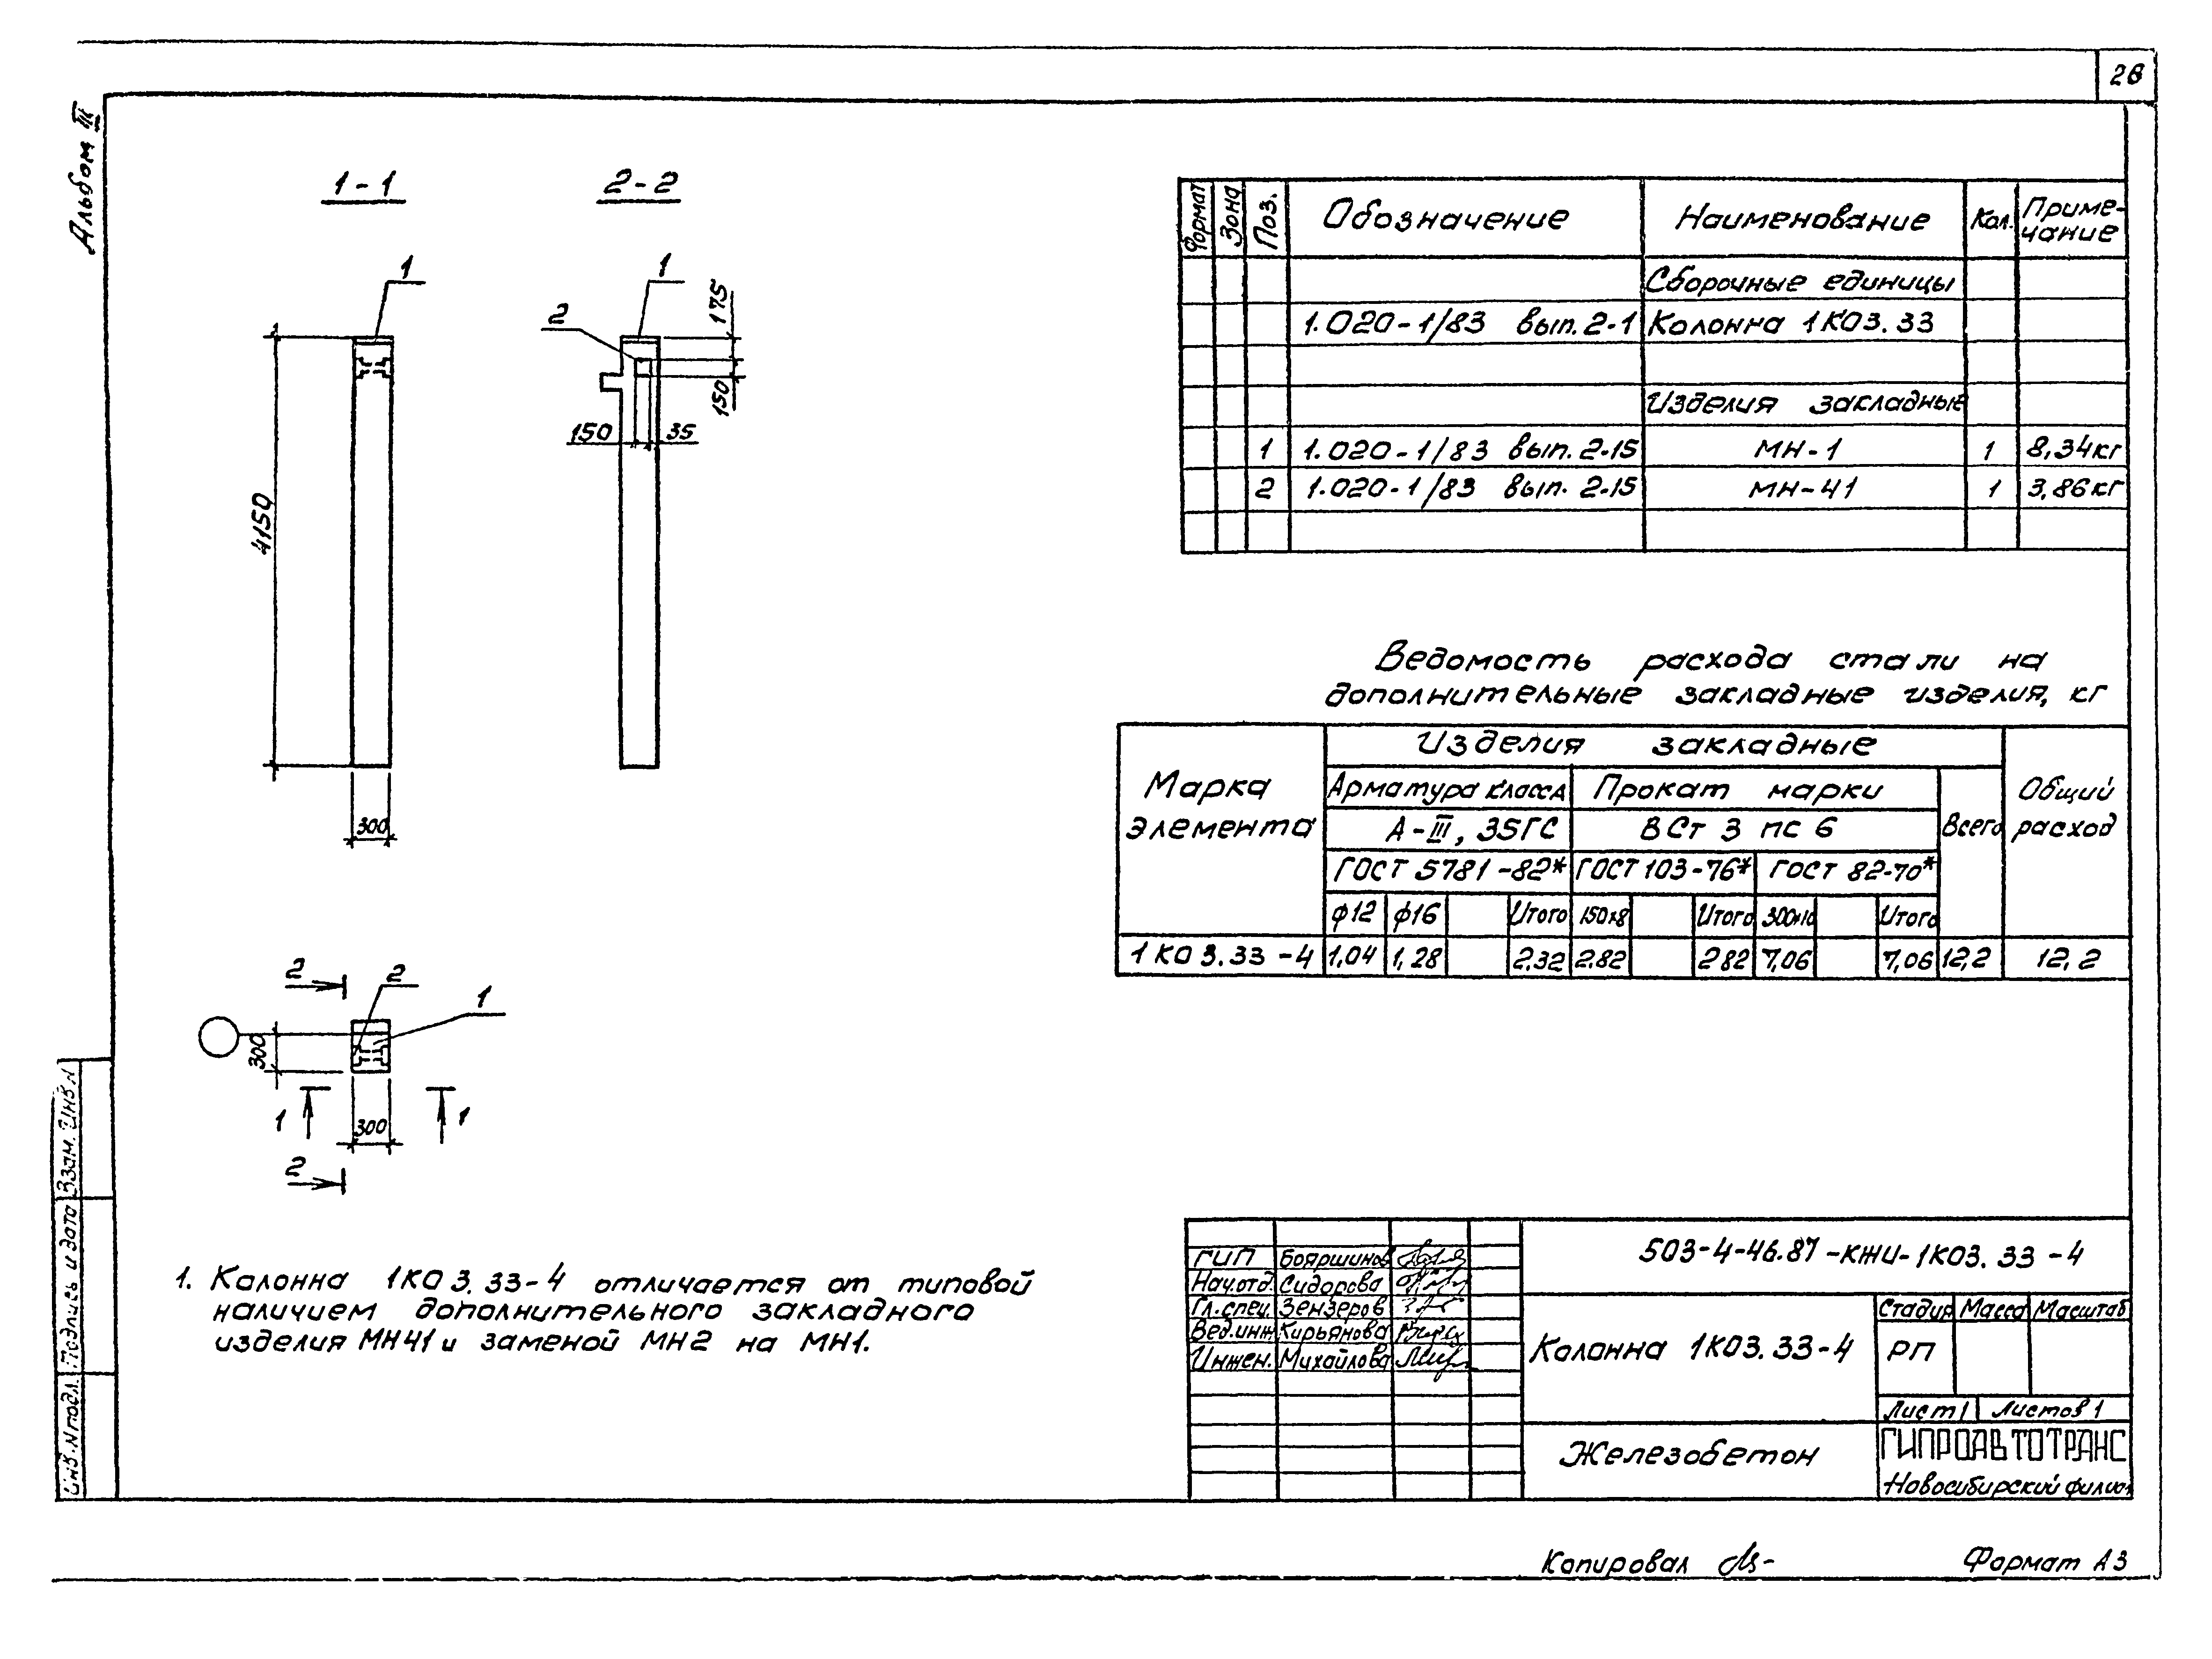 28
Альбом III
1-1
2-2
1
1
2
175
150
150
35
4150
300
2
2
1
300
1
1
300
2
1. Колонна 1КО3.33-4 отличается от типовой
наличием дополнительного закладного
изделия МН41 и заменой МН2 на МН1.
Формат Зона Поз. Обозначение Наименование Кол. Приме-
чание
Сборочные единицы
1.020-1/83 вып.2-1 Колонна 1КО3.33
Изделия закладные
1 1.020-1/83 вып.2-15 МН-1 1 8,34кг
2 1.020-1/83 вып.2-15 МН-41 1 3,86кг
Ведомость расхода стали на
дополнительные закладные изделия, кг
Марка
элемента
Изделия закладные
Общий
расход
Арматура класса Прокат марки
А-III, 35ГС ВСт 3 пс 6 Всего
ГОСТ 5781-82* ГОСТ 103-76* ГОСТ 82-70*
ϕ12 ϕ16 Итого 150х8 Итого 300х10 Итого
1КО3.33-4 1,04 1,28 2,32 2,82 282 7,06 7,06 12,2 12,2
503-4-46.87-КЖИ-1КО3.33-4
ГИП Бояршинов
Нач.отд. Сидорова
Гл.спец. Зензеров
Вед.инж Кирьянова
Инжен. Михайлова
Колонна 1КО3.33-4
Стадия Масса Масштаб
РП
Лист 1 Листов 1
Железобетон
ГИПРОАВТОТРАНС
Новосибирский филиал
Взам. инв.N
Подпись и дата
Инв.N подл.
Копировал
Формат А3